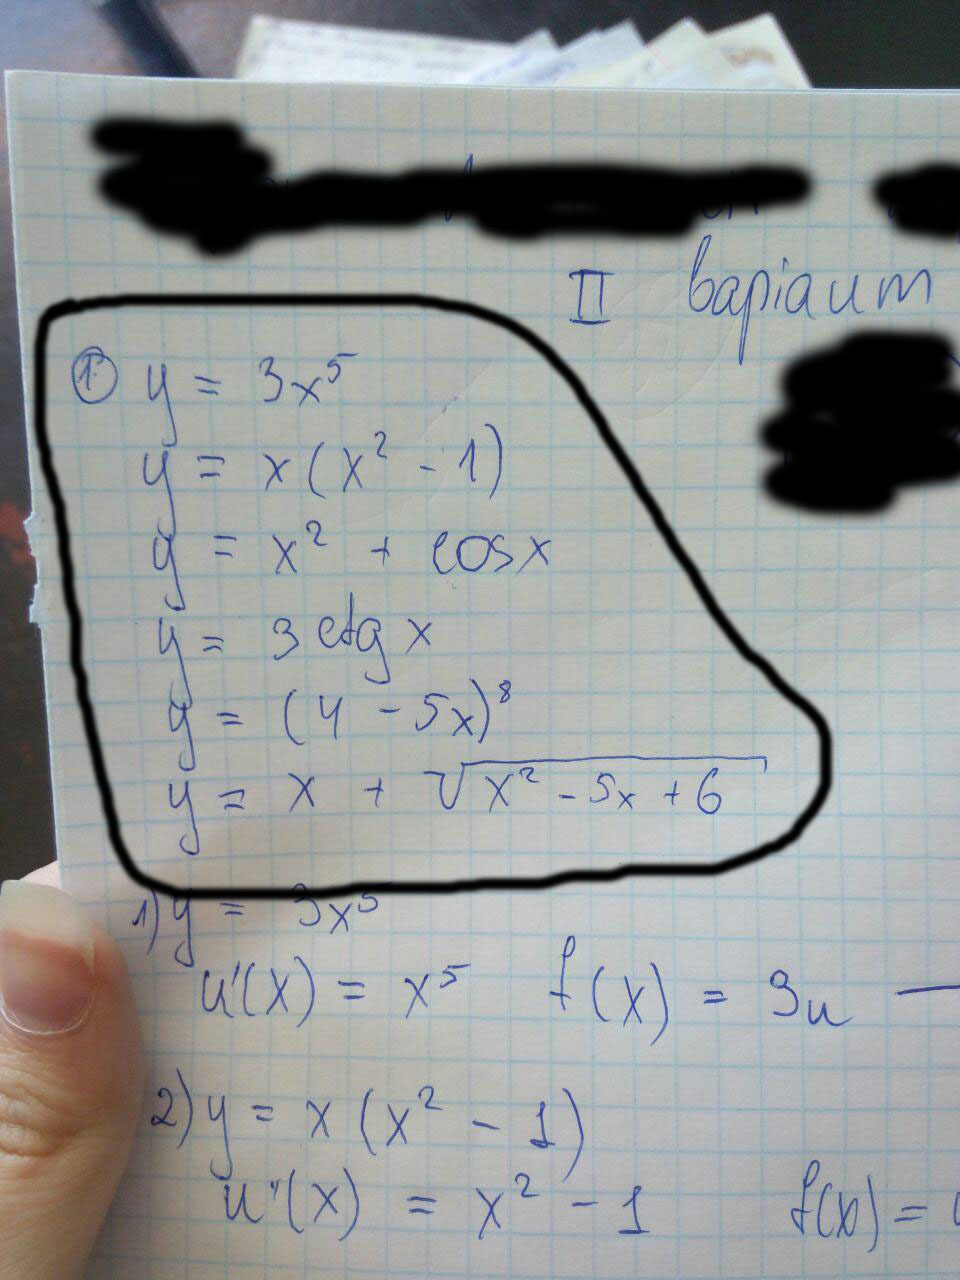 II варіант
1. y = 3x⁵
y = x(x² - 1)
y = x² + cosx
y = 3 ctg x
y = (4 - 5x)⁸
y = x + √x² - 5x + 6
1) y = 3x⁵
u'(x) = x⁵ f(x) = 3u —
2) y = x (x² - 1)
u''(x) = x² - 1 f(x) =